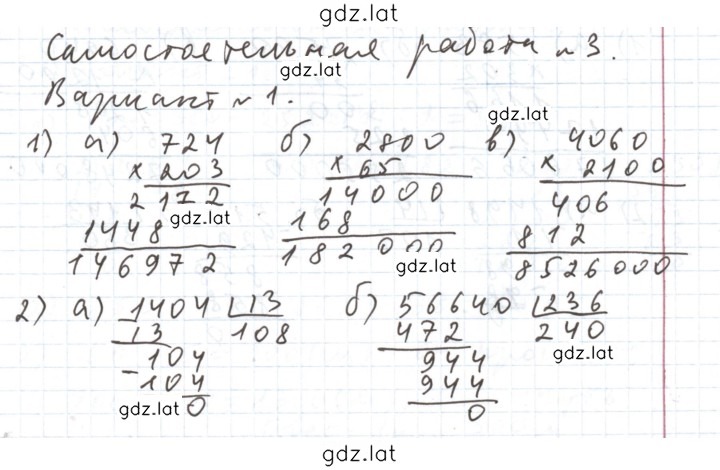 gdz.lat
Самостоятельная работа №3.
gdz.lat
Вариант №1.
gdz.lat
1) а) 724 б) 2800 в) 4060
× 203 × 65 × 2100
2172 14000 406
gdz.lat
1448 168 812
146972 182000 8526000
gdz.lat
2) а) 1404 13 б) 56640 236
13 108 472 240
-104 944
104 944
gdz.lat
0 0
gdz.lat
gdz.lat